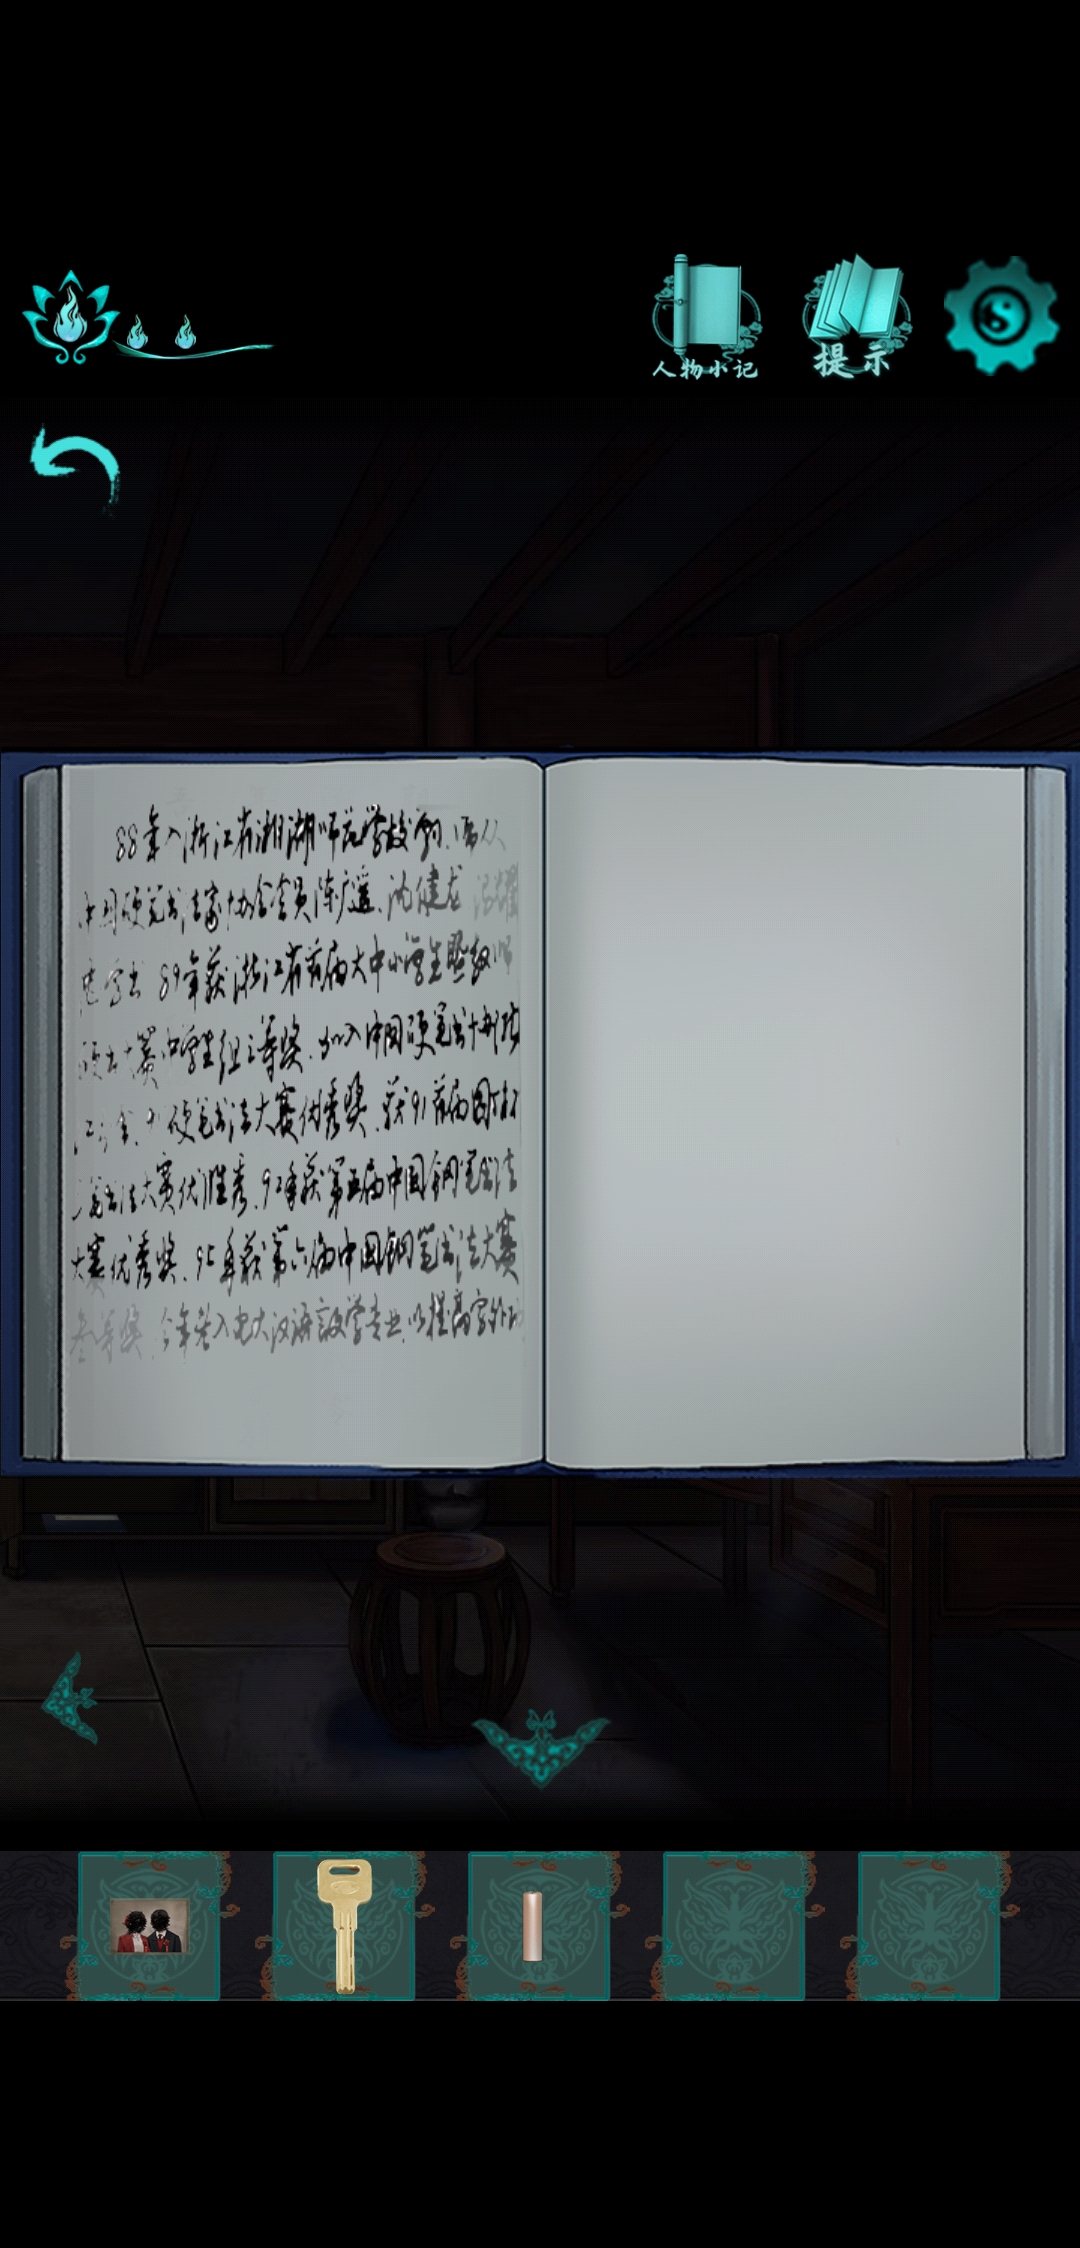 人物小记
提示
88年入浙江省湘湖师范学校
中国硬笔书法家协会会员陈广遥、沈健龙
89年获浙江省首届大中小学生
硬书大赛中学生组三等奖.加入中国硬笔书
硬笔书法大赛优秀奖.获91首届国
笔书法大赛优胜秀.92年获第五届中国钢笔书法
大赛优秀奖.95年获第六届中国钢笔书法大赛
叁等奖.今年考入电大汉语言文学专业.以提高字外功